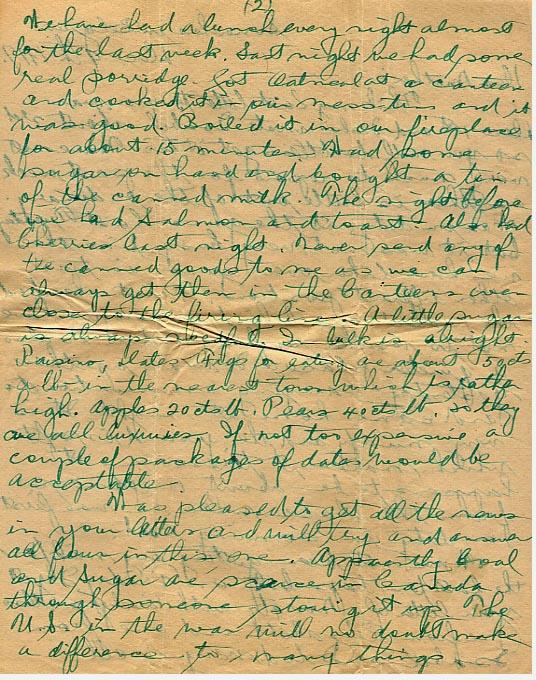 (2)
We have had a lunch every night almost
for the last week. Last night we had some
real porridge. Got Oatmeal at a canteen
and cooked it in our mess tin and it
was good. Boiled it in our fireplace
for about 15 minutes. Had some
sugar on hand and bought a tin
of the canned milk. The night before
we had Salmon and toast. Also had
Cherries last night. Never send any of
the canned goods to me as we can
always get them in the Canteens even
close to the firing line. A little sugar
is always useful. In bulk is alright.
Raisins, dates & figs for eating are about 50 cts
a lb. in the nearest town which is rather
high. Apples 20 cts lb. Pears 40 cts lb. so they
are all luxuries. If not too expensive, a
couple of packages of dates would be
acceptable.
Was pleased to get all the news
in your letters and will try and answer
all four in this one. Apparently Coal
and Sugar are scarce in Canada
through someone storing it up. The
U.S. in the war will no doubt make
a difference to many things.